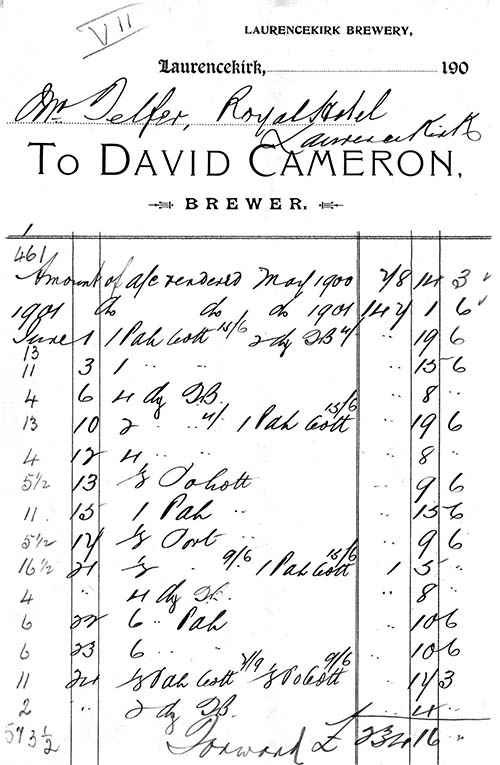 VII
LAURENCEKIRK BREWERY,
Laurencekirk, 190
Mr Telfer, Royal Hotel
Laurencekirk
To DAVID CAMERON,
BREWER.
461
Amount of a/c rendered May 1900 14 3
1901 do do do 1901 147 1 6
June 1 1 Pah Cott 15/6 2 dz DB 4/ " 19 6
13
11 3 1 " " " 15 6
4 6 4 dz DB " 8 "
13 10 2 " " 4/ 1 Pah Cott 15/6 " 19 6
4 12 4 " " " 8 "
5½ 13 ½ " 9 6
11 15 1 Pah " " 15 6
5½ 17 ½ " 9 6
16½ 21 ½ " 9/6 1 Pah Cott 15/6 1 5 "
4 " 4 dz " 8 "
6 22 6 " Pah " 10 6
6 23 6 " " " 10 6
11 24 ½ Pah Cott 7/9 ½ 9/6 " 17 3
2 " 2 dz DB " 4 "
573½ Forward £ 234 16 "